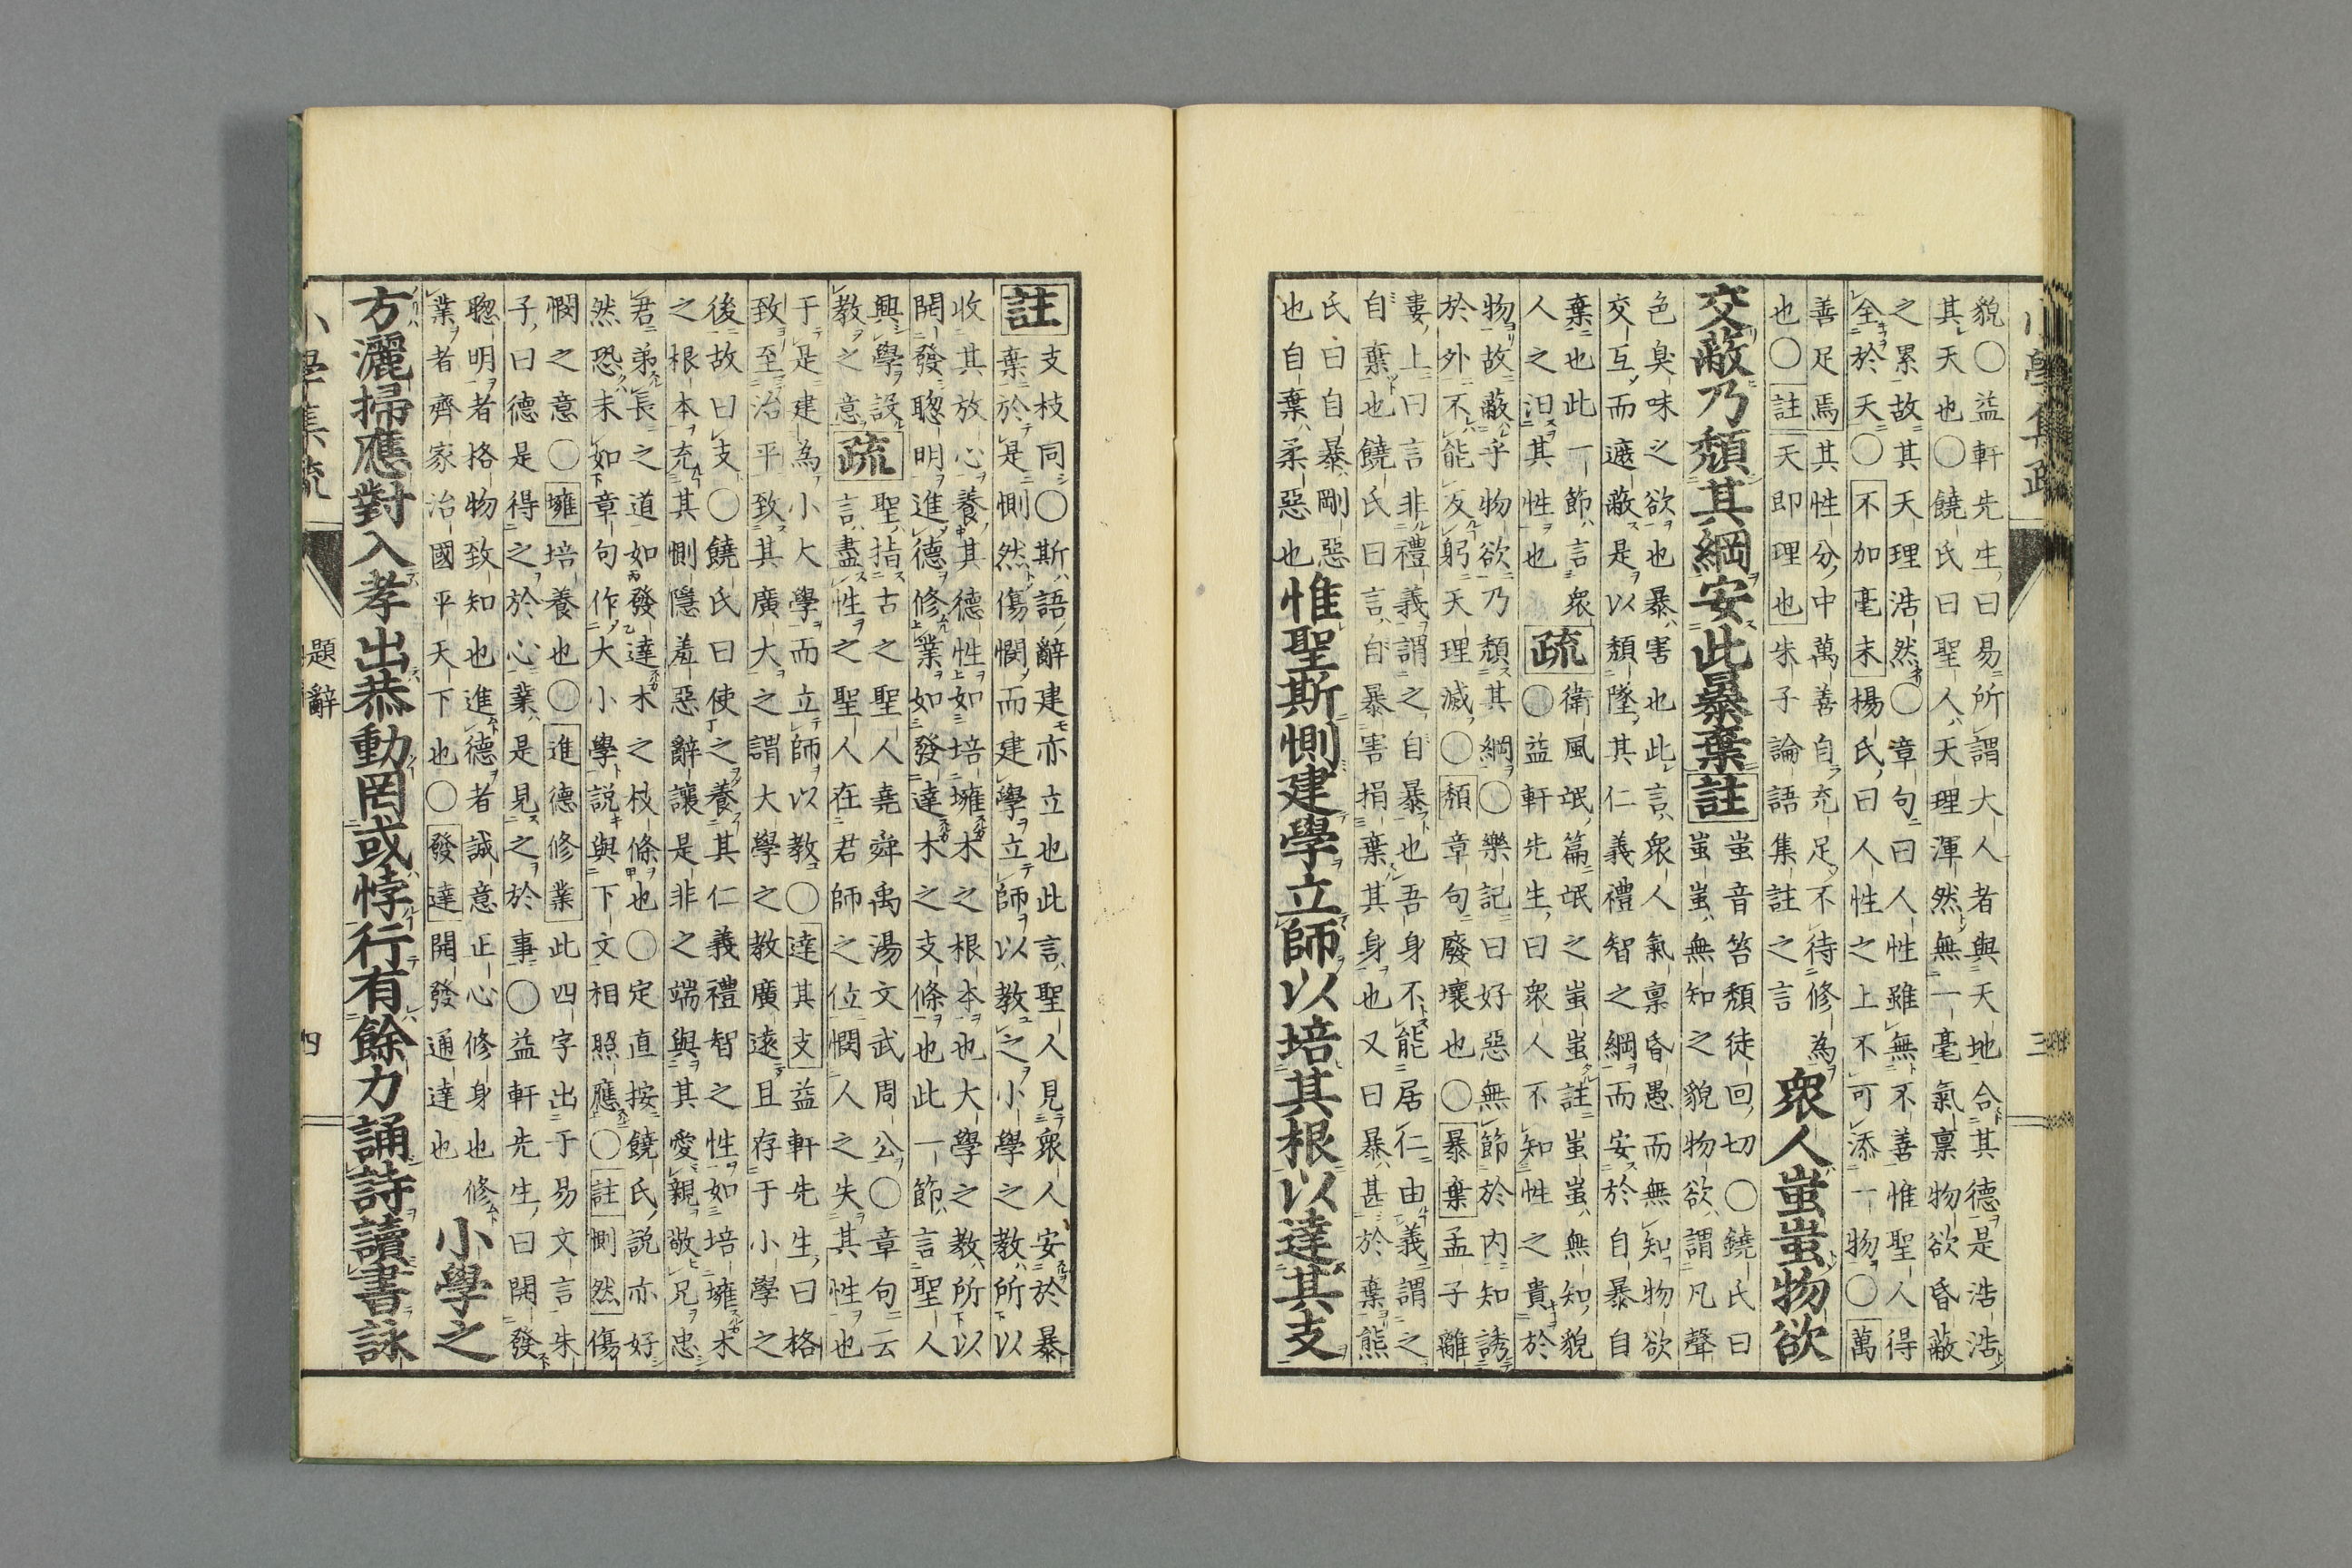 小學集疏
三
貌〇益軒先生曰易所謂大人者與天地合其德是浩浩
其天也〇饒氏曰聖人天理渾然無一毫氣禀物欲昏蔽
之累故其天理浩然〇章句曰人性雖無不善惟聖人得
全於天〇不加毫末楊氏曰人性之上不可添一物〇萬
善足焉其性分中萬善自充足不待修為
也〇註天即理也朱子論語集註之言
衆人蚩蚩物欲
交蔽乃頽其綱安此暴棄註
蚩音笞頽徒回切〇饒氏曰
蚩蚩無知之貌物欲謂凡聲
色臭味之欲也暴害也此言衆人氣禀昏愚而無知物欲
交互而遮蔽是以頽墜其仁義禮智之綱而安於自暴自
棄也此一節言衆
人之汩其性也
疏
衛風氓篇氓之蚩蚩註蚩蚩無知貌
〇益軒先生曰衆人不知性之貴於
物故蔽乎物欲乃頽其綱〇樂記曰好惡無節於内知誘
於外不能反躬天理滅〇頽章句廢壞也〇暴棄孟子離
婁上曰言非禮義謂之自暴也吾身不能居仁由義謂之
自棄也饒氏曰言自暴害捐棄其身也又曰暴甚於棄熊
氏曰自暴剛惡
也自棄柔惡也
惟聖斯惻建學立師以培其根以達其支
註
支枝同〇斯語辭建亦立也此言聖人見衆人安於暴
棄於是惻然傷憫而建學立師以教之小學之教所以
收其放心養其德性如培壅木之根本也大學之教所以
開發聰明進德修業如發達木之支條也此一節言聖人
興學設
教之意
疏
聖指古之聖人堯舜禹湯文武周公〇章句云
言盡性之聖人在君師之位憫人之失其性也
于是建為小大學而立師以教〇達其支益軒先生曰格
致至治平致其廣大之謂大學之教廣遠且存于小學之
後故曰支〇饒氏曰使之養其仁義禮智之性如培壅木
之根本充其惻隱羞惡辭讓是非之端與其愛親敬兄忠
君弟長之道如發達木之枝條也〇定直按饒氏説亦好
然恐未如章句作大小學説與下文相照應〇註惻然傷
憫之意〇壅培養也〇進德修業此四字出于易文言朱
子曰德是得之於心業是見之於事〇益軒先生曰開發
聰明者格物致知也進德者誠意正心修身也修
業者齊家治國平天下也〇發達開發通達也
小學之
方灑掃應對入孝出恭動罔或悖行有餘力誦詩讀書詠
小學集疏
題辭
四